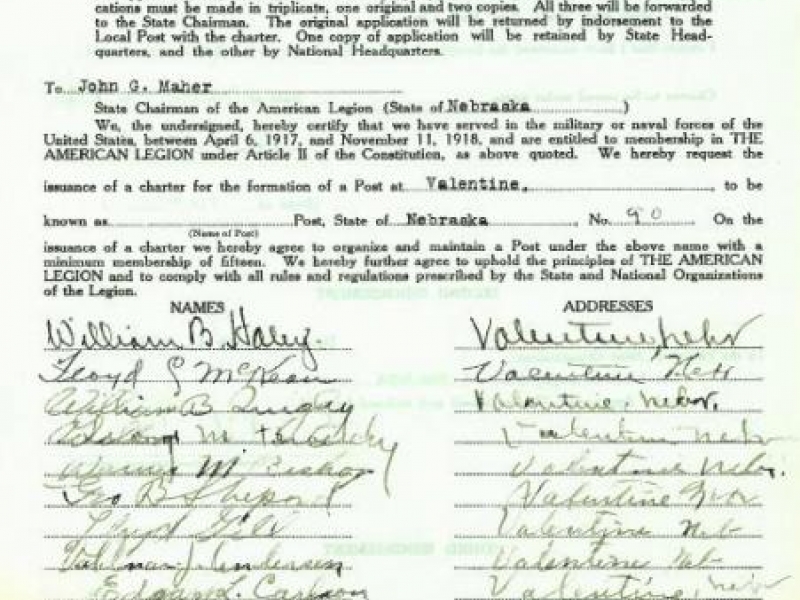 cations must be made in triplicate, one original and two copies. All three will be forwarded
to the State Chairman. The original application will be returned by indorsement to the
Local Post with the charter. One copy of application will be retained by State Head-
quarters, and the other by National Headquarters.
To John G. Maher
State Chairman of the American Legion (State of Nebraska )
We, the undersigned, hereby certify that we have served in the military or naval forces of the
United States, between April 6, 1917, and November 11, 1918, and are entitled to membership in THE
AMERICAN LEGION under Article II of the Constitution, as above quoted. We hereby request the
issuance of a charter for the formation of a Post at Valentine, , to be
known as Post, State of Nebraska , No. 90 On the
(Name of Post)
issuance of a charter we hereby agree to organize and maintain a Post under the above name with a
minimum membership of fifteen. We hereby further agree to uphold the principles of THE AMERICAN
LEGION and to comply with all rules and regulations prescribed by the State and National Organizations
of the Legion.
NAMES ADDRESSES
William B. Haley. Valentine, nebr
Floyd McKean Valentine Nebr
William B Quigley Valentine, nebr.
M Valentine nebr
M. Valentine Nebr.
Geo B Shepard Valentine Nebr
Lloyd Valentine Neb
J. Andersen Valentine Neb
Edgar L. Carlson Valentine, nebr